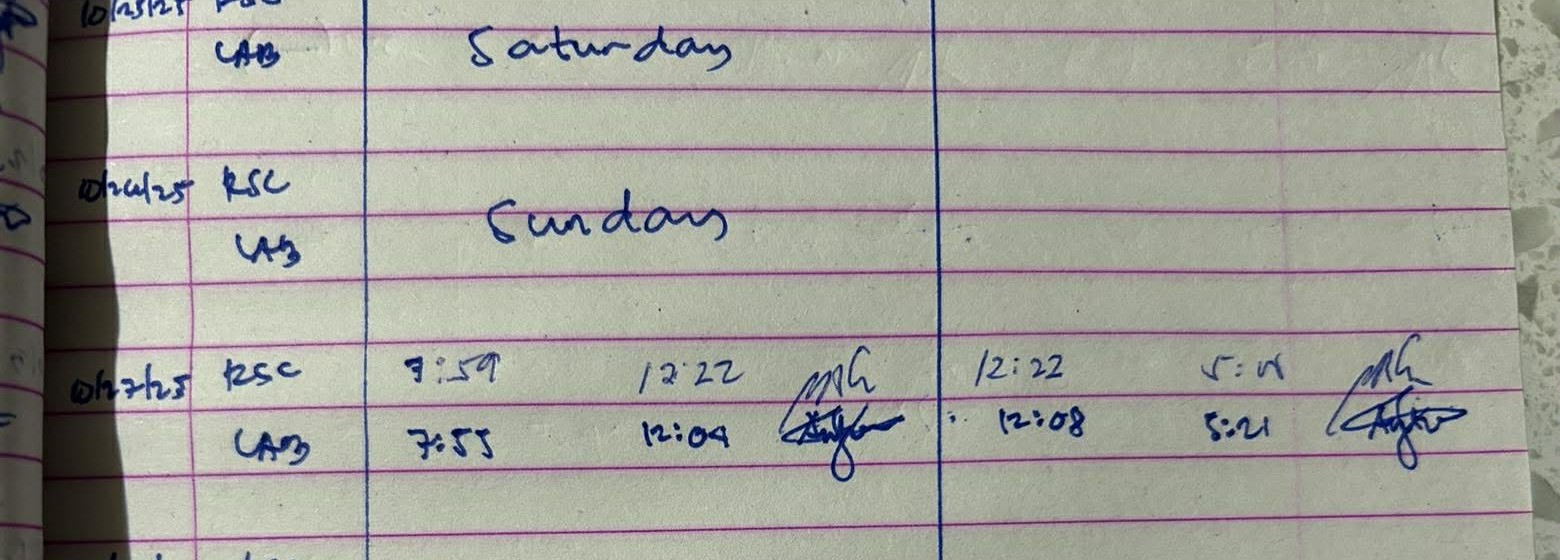 10/25/25 RSC
LAB Saturday
10/26/25 RSC
Sunday
LAB
10/27/25 RSC 7:59 12:22 12:22
LAB 7:55 12:04 12:08 5:21